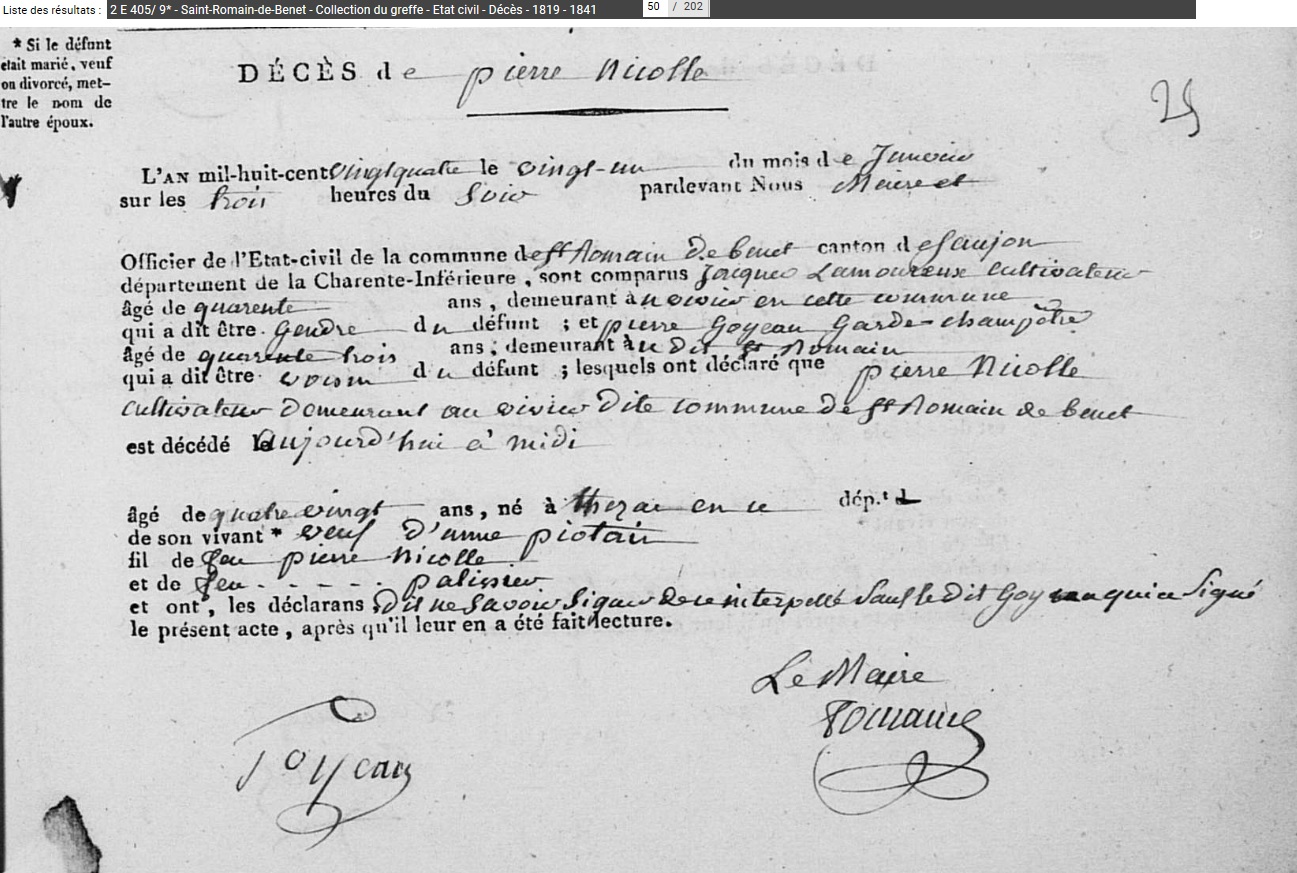 Liste des résultats : 2 E 405/ 9* - Saint-Romain-de-Benet - Collection du greffe - Etat civil - Décès - 1819 - 1841 50 / 202
* Si le défunt
était marié, veuf
ou divorcé, met-
tre le nom de
l'autre époux.
DÉCÈS de pierre Nicolle
25
L'AN mil-huit-cent vingtquatre le vingt-un du mois de Janvier
sur les trois heures du Soir pardevant Nous Maire et
Officier de l'Etat-civil de la commune de st Romain De benet canton de Saujon
département de la Charente-Inférieure, sont comparus Jacques Lamoureux Cultivateur
âgé de quarente ans, demeurant à u vivier en cette commune
qui a dit être Gendre du défunt ; et pierre Goyeau Garde-champêtre
âgé de quarente trois ans, demeurant à u Dit st Romain
qui a dit être voisin du défunt ; lesquels ont déclaré que pierre Nicolle
Cultivateur Demeurant au vivier Dite commune De st Romain de benet
est décédé aujourd'hui à midi
âgé de quatre vingt ans, né à thezac en ce dép.t
de son vivant * veuf d'anne piotain
fil de feu pierre Nicolle
et de feu - - - - - palissier
et ont, les déclarans Dit ne Savoir Signer De ce interpellé Sauf le Dit Goyeau qui a Signé
le présent acte, après qu'il leur en a été fait lecture.
Le Maire
Goyeau